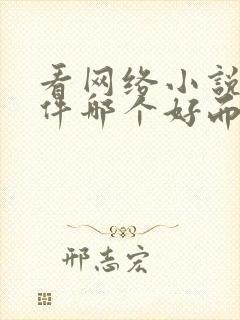 看网络小说
件哪个好而
邢志宏